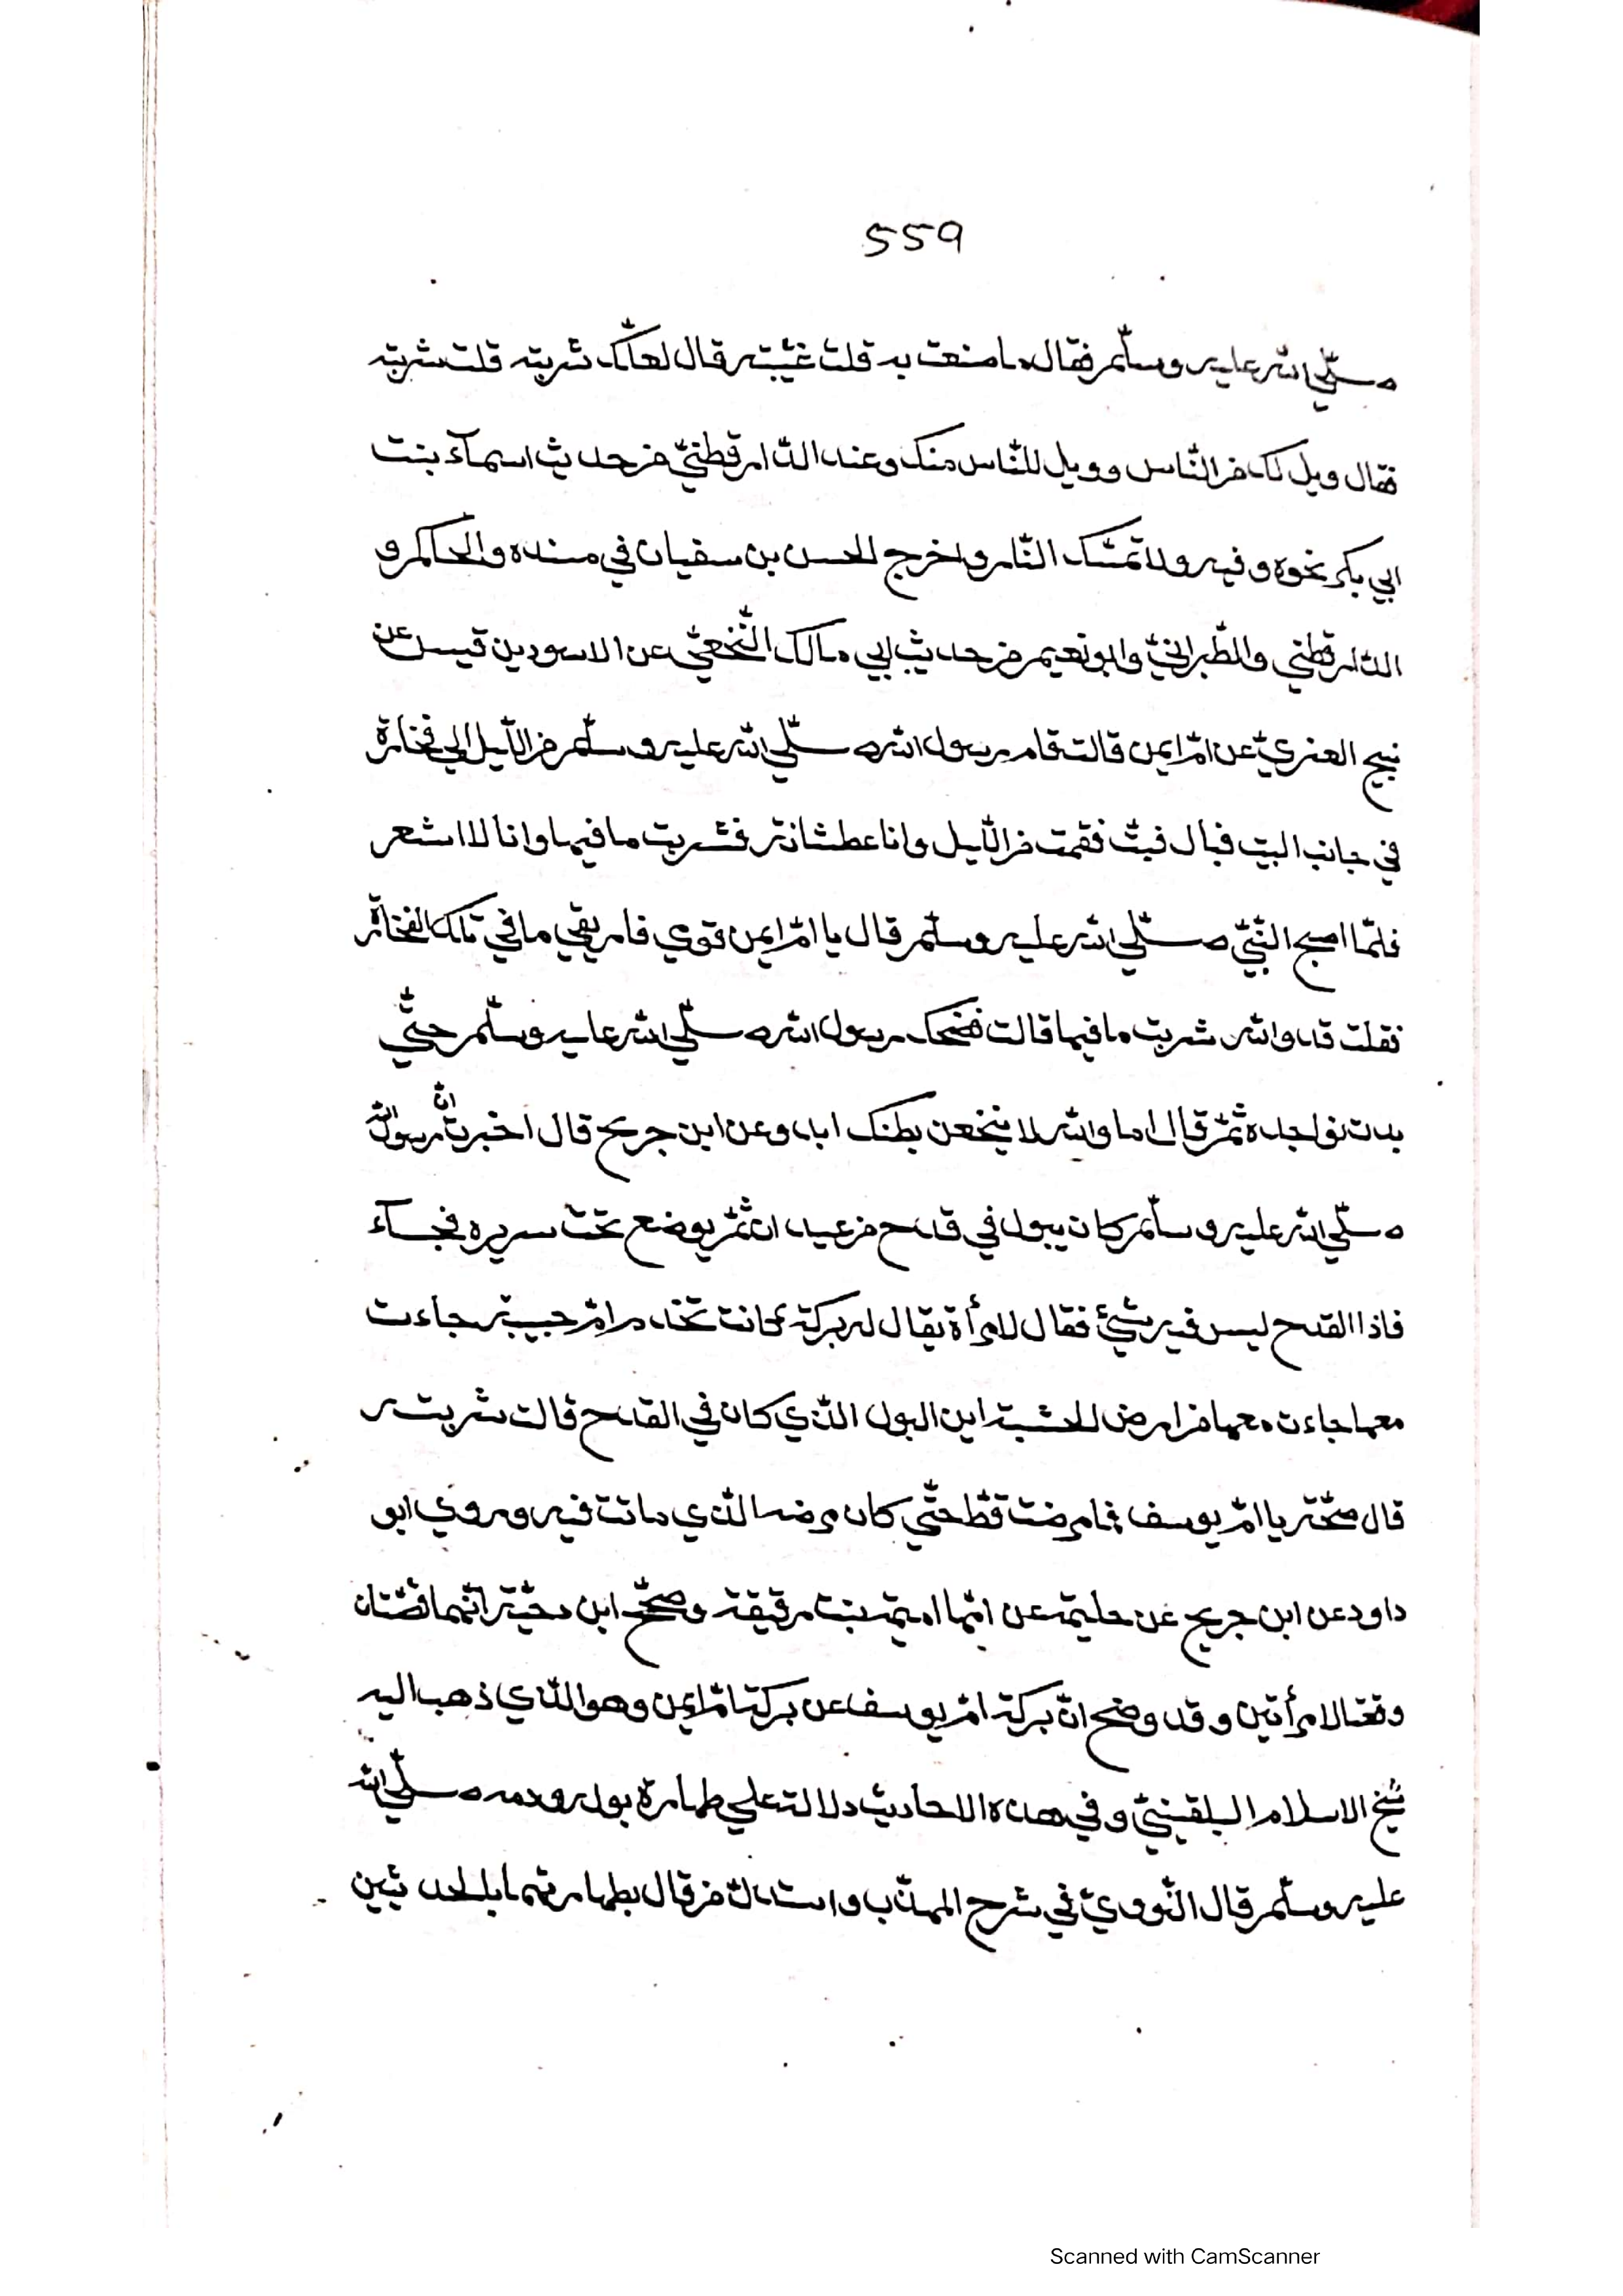 559
صلّي الله عليه وسلّم فقال ما صنعت به قلت غيّبته قال لعلّك شربته قلت شربته
فقال ويل لك من النّاس وويل للنّاس منك وعند الدّارقطنيّ من حديث اسمآء بنت
ابي بكر نحوه وفيه ولا تمسّك النّار واخرج الحسن بن سفيان في مسنده والحاكم و
الدّارقطني والطّبرانيّ وابو نعيم من حديث ابي مالك النّخعيّ عن الاسود بن قيس عن
نبيح العنزيّ عن امّ ايمن قالت قام رسول الله صلّي الله عليه وسلّم من اللّيل الي فخّارة
في جانب البيت فبال فيها فقمت من اللّيل وانا عطشانة فشربت ما فيها وانا لا اشعر
فلمّا اصبح النّبيّ صلّي الله عليه وسلّم قال يا امّ ايمن قومي فاهريقي ما في تلك الفخّارة
فقلت قد والله شربت ما فيها قالت فضحك رسول الله صلّي الله عليه وسلّم حتّي
بدت نواجذه ثمّ قال اما والله لا ينجعن بطنك ابدا وعن ابن جريج قال اخبرت انّ رسول الله
صلّي الله عليه وسلّم كان يبول في قدح من عيدان ثمّ يوضع تحت سريره فجآء
فاذا القدح ليس فيه شيئ فقال لامرأة يقال له بركة كانت تخدم امّ حبيبة جاءت
معها جاءت معها من ارض الحشبة اين البول الّذي كان في القدح قالت شربته
قال صحّة يا امّ يوسف فما مرضت قطّ حتّي كان مرضها الّذي ماتت فيه وروي ابو
داود عن ابن جريج عن حليمة عن امّها اميمة بنت رقيقة وصحّح ابن دحيّة انّهما قصّتان
وقعتا لامرأتين وقد وضح انّ بركة امّ يوسف عن بركة امّ ايمن وهو الّذي ذهب اليه
شيخ الاسلام البلقينيّ وفي هذه الاحاديث دلالة علي طهارة بوله ودمه صلّي الله
عليه وسلّم قال النّوويّ في شرح المهذّب واستدلّ من قال بطهارتهما بالحديثين
Scanned with CamScanner